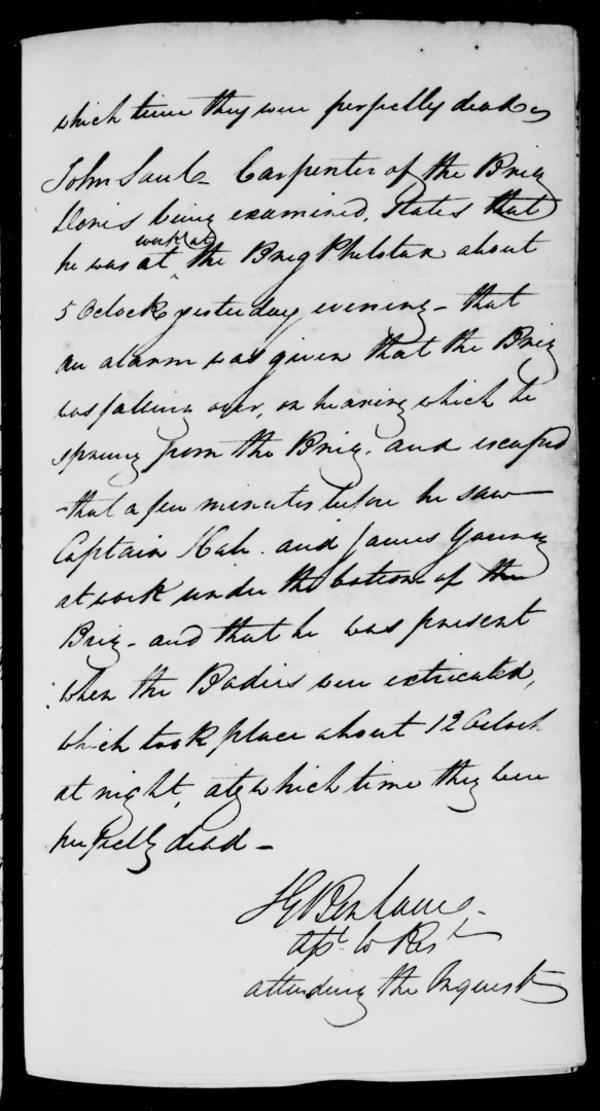 which time they were perfectly dead
John Saul - Carpenter of the Brig
Doris being examined, States that
work at
he was at the Brig Philotax about
5 OClock yesterday evening - that
an alarm was given that the Brig
was falling over, on hearing which he
sprung from the Brig. and escaped
- that a few minutes before he saw
Captain and James Young
at work under the bottom of the
Brig - and that he was present
when the Bodies were extricated,
which took place about 12 OClock
at night, at which time they were
perfectly dead -
attending the Inquest